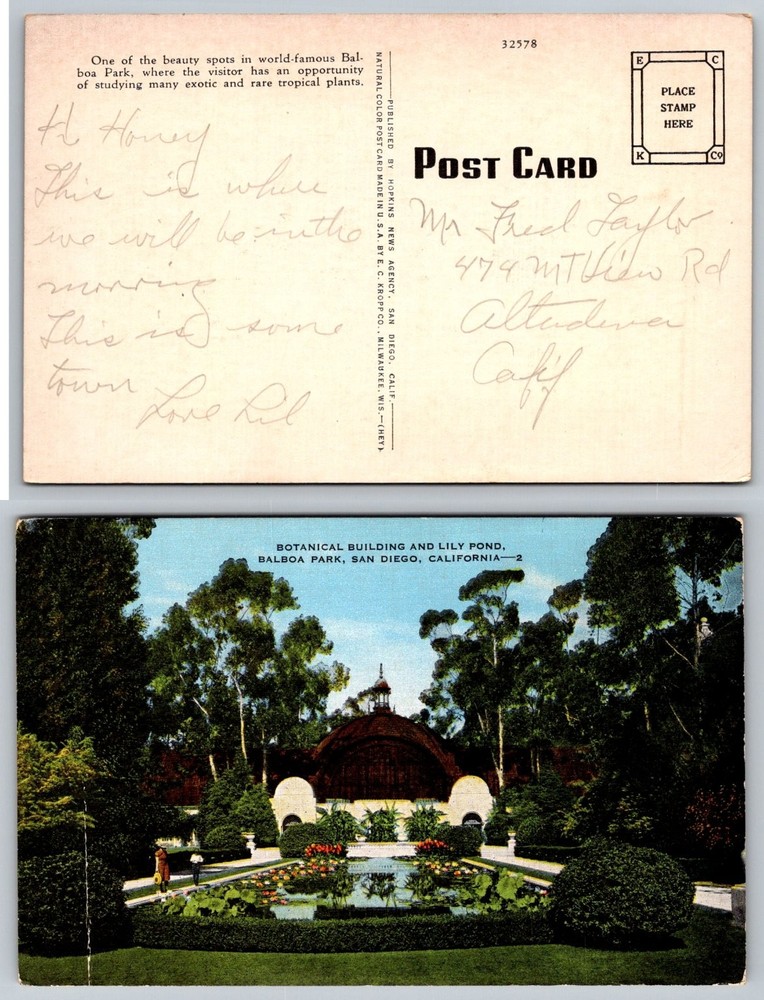 32578
One of the beauty spots in world-famous Bal-
boa Park, where the visitor has an opportunity
of studying many exotic and rare tropical plants.
Hi Honey
This is where
we will be in the
morning
This is some
town
Love Lil
PUBLISHED BY HOPKINS NEWS AGENCY, SAN DIEGO, CALIF.
NATURAL COLOR POST CARD MADE IN U.S.A. BY E. C. KROPP CO., MILWAUKEE, WIS.—(HEY)
E C
PLACE
STAMP
HERE
K Co
POST CARD
Mr Fred Taylor
474 MT View Rd
Altadena
Calif
BOTANICAL BUILDING AND LILY POND,
BALBOA PARK, SAN DIEGO, CALIFORNIA—2